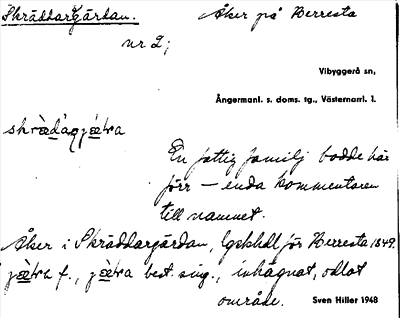 Skräddargärdan. Åker på Herresta
nr 2;
Vibyggerå sn,
Ångermanl. s. doms. tg., Västernorrl. l.
En fattig familj bodde här
förr – enda kommentaren
till namnet.
Åker i Skräddargärdan, lgskhdl för Herresta 1849.
f., best. sing., inhägnat, odlat
område. Sven Hiller 1948